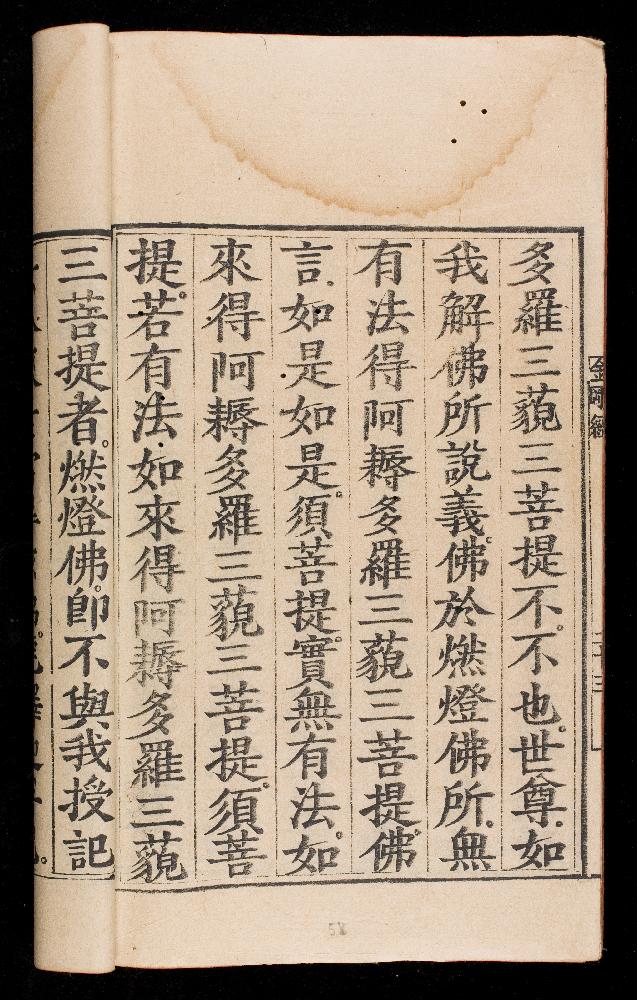 多羅三藐三菩提不。不也。世尊。如
我解佛所說義。佛於燃燈佛所。無
有法得阿耨多羅三藐三菩提。佛
言。如是如是。須菩提。實無有法。如
來得阿耨多羅三藐三菩提。須菩
提。若有法。如來得阿耨多羅三藐
三菩提者。燃燈佛。即不與我授記
金剛經
二十三
58